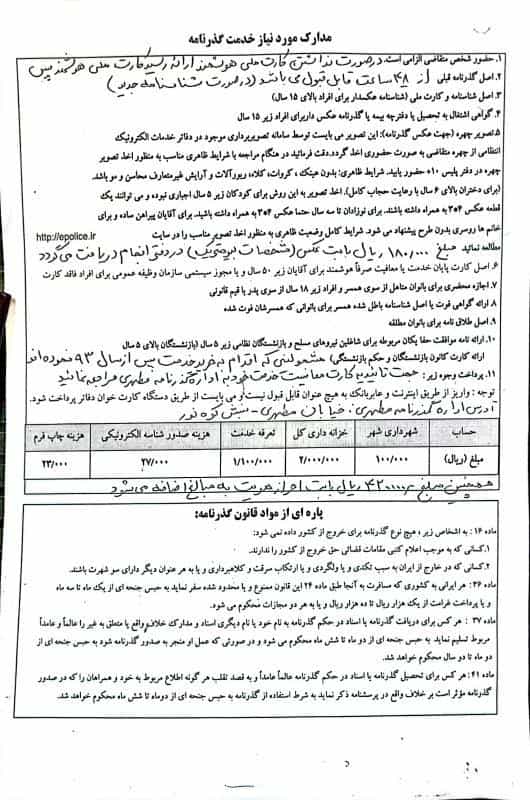 مدارک مورد نیاز خدمت گذرنامه
۱. حضور شخص متقاضی الزامی است. در صورت نداشتن کارت ملی هوشمند ارائه رسید کارت ملی هوشمند پس
۲. اصل گذرنامه قبلی از ۴۸ ساعت قابل قبول می باشد (در صورت شناسنامه جدید)
۳. اصل شناسنامه و کارت ملی (شناسنامه عکسدار برای افراد بالای ۱۵ سال)
۴. گواهی اشتغال به تحصیل یا دفترچه بیمه یا گذرنامه عکس دار برای افراد زیر ۱۵ سال
۵. تصویر چهره (جهت عکس گذرنامه): این تصویر می بایست توسط سامانه تصویربرداری موجود در دفاتر خدمات الکترونیک
انتظامی از چهره متقاضی به صورت حضوری اخذ گردد. دقت فرمائید در هنگام مراجعه با شرایط ظاهری مناسب به منظور اخذ تصویر
چهره در دفتر پلیس +۱۰ حضور یابید. شرایط ظاهری: بدون عینک، کروات، کلاه، زیورآلات و آرایش غیرمتعارف محاسن و مو باشد.
(برای دختران بالای ۶ سال با رعایت حجاب کامل). اخذ تصویر به این روش برای کودکان زیر ۵ سال اجباری نبوده و می توانند یک
قطعه عکس ۴*۳ به همراه داشته باشند. برای نوزادان تا سه سال حتما عکس ۴*۳ به همراه داشته باشید. برای آقایان پیراهن ساده و برای
خانم ها روسری بدون طرح پیشنهاد می شود. شرایط کامل وضعیت ظاهری به منظور اخذ تصویر مناسب را در سایت http://epolice.ir
مطالعه نمائید مبلغ ۱۸۰/۰۰۰ ریال بابت عکس (مشخصات بیومتریک) در دفتر انجام دریافت می گردد
۶. اصل کارت پایان خدمت یا معافیت صرفاً هوشمند برای آقایان زیر ۵۰ سال و یا مجوز سیستمی سازمان وظیفه عمومی برای افراد فاقد کارت
۷. اجازه محضری برای بانوان متاهل از سوی همسر و افراد زیر ۱۸ سال از سوی پدر یا قیم قانونی
۸. ارائه گواهی فوت یا اصل شناسنامه باطل شده همسر برای بانوانی که همسرشان فوت شده
۹. اصل طلاق نامه برای بانوان مطلقه
۱۰. ارائه نامه موافقت حفا یگان مربوطه برای شاغلین نیروهای مسلح و بازنشستگان نظامی زیر ۵ سال (بازنشستگان بالای ۵ سال
ارائه کارت کانون بازنشستگی و حکم بازنشستگی) مشمولینی که اقدام به خرید خدمت پس از سال ۹۳ نموده اند
۱۱. پرداخت وجوه زیر: جهت تائیدیه کارت معافیت خدمت خود به اداره گذرنامه مطهری مراجعه نمائید
توجه: واریز از طریق اینترنت و عابربانک به هیچ عنوان قابل قبول نیست و می بایست از طریق دستگاه کارت خوان دفاتر پرداخت شود.
آدرس اداره گذرنامه مطهری: خیابان مطهری - نبش کوه نور
حساب شهرداری شهر خزانه داری کل تعرفه خدمت هزینه صدور شناسه الکترونیکی هزینه چاپ فرم
مبلغ (ریال) ۱۰۰/۰۰۰ ۲/۰۰۰/۰۰۰ ۱/۱۰۰/۰۰۰ ۲۷/۰۰۰ ۲۳/۰۰۰
همچنین مبلغ ۴۲۰۰۰ ریال بابت احراز هویت به مبالغ اضافه می شود
پاره ای از مواد قانون گذرنامه:
ماده ۱۶: به اشخاص زیر، هیچ نوع گذرنامه برای خروج از کشور داده نمی شود:
۱. کسانی که به موجب اعلام کتبی مقامات قضائی حق خروج از کشور را ندارند.
۲. کسانی که در خارج از ایران به سبب تکدی و یا ولگردی و یا ارتکاب سرقت و کلاهبرداری و یا به هر عنوان دیگر دارای سو شهرت باشند.
ماده ۳۶: هر ایرانی به کشوری که مسافرت به آنجا طبق ماده ۲۴ این قانون ممنوع و یا محدود شده سفر نماید به حبس جنحه ای از یک ماه تا سه ماه
و یا پرداخت غرامت از یک هزار ریال تا ده هزار ریال و یا به هر دو مجازات محکوم می شود.
ماده ۳۷: هر کس برای دریافت گذرنامه یا اسناد در حکم گذرنامه به نام خود یا نام دیگری اسناد و مدارک خلاف واقع یا متعلق به غیر را عالماً و عامداً
مربوط تسلیم نماید به حبس جنحه ای از دو ماه تا شش ماه محکوم می شود و در صورتی که عمل او منجر به صدور گذرنامه شود به حبس جنحه ای از
دو ماه تا دو سال محکوم خواهد شد.
ماده ۴۱: هر کس برای تحصیل گذرنامه یا اسناد در حکم گذرنامه عالماً عامداً و به قصد تقلب هر گونه اطلاع مربوط به خود و همراهان را که در صدور
گذرنامه مؤثر است بر خلاف واقع در پرسشنامه ذکر نماید به شرط استفاده از گذرنامه به حبس جنحه ای از دوماه تا شش ماه محکوم خواهد شد.